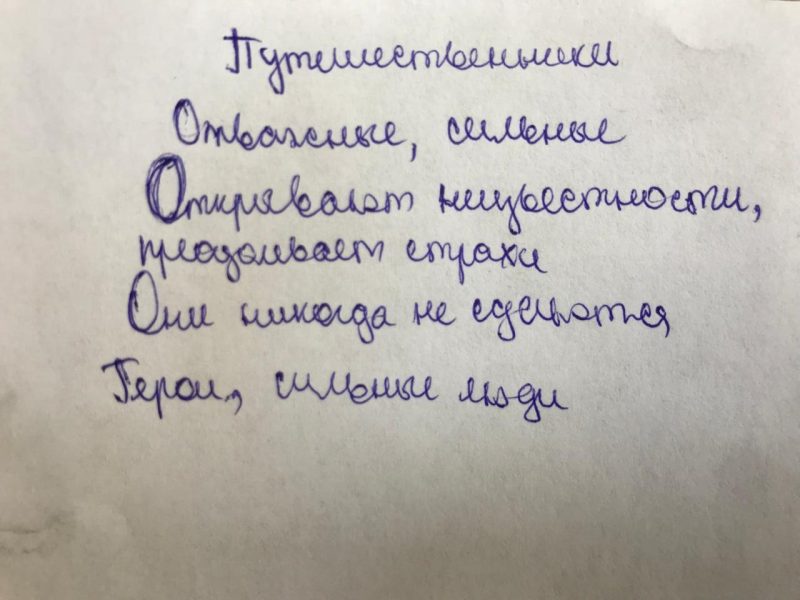 Путешественники
Отважные, сильные
Открывают неизвестности,
преодолевает страхи
Они никогда не сдеються
Герои, сильные люди